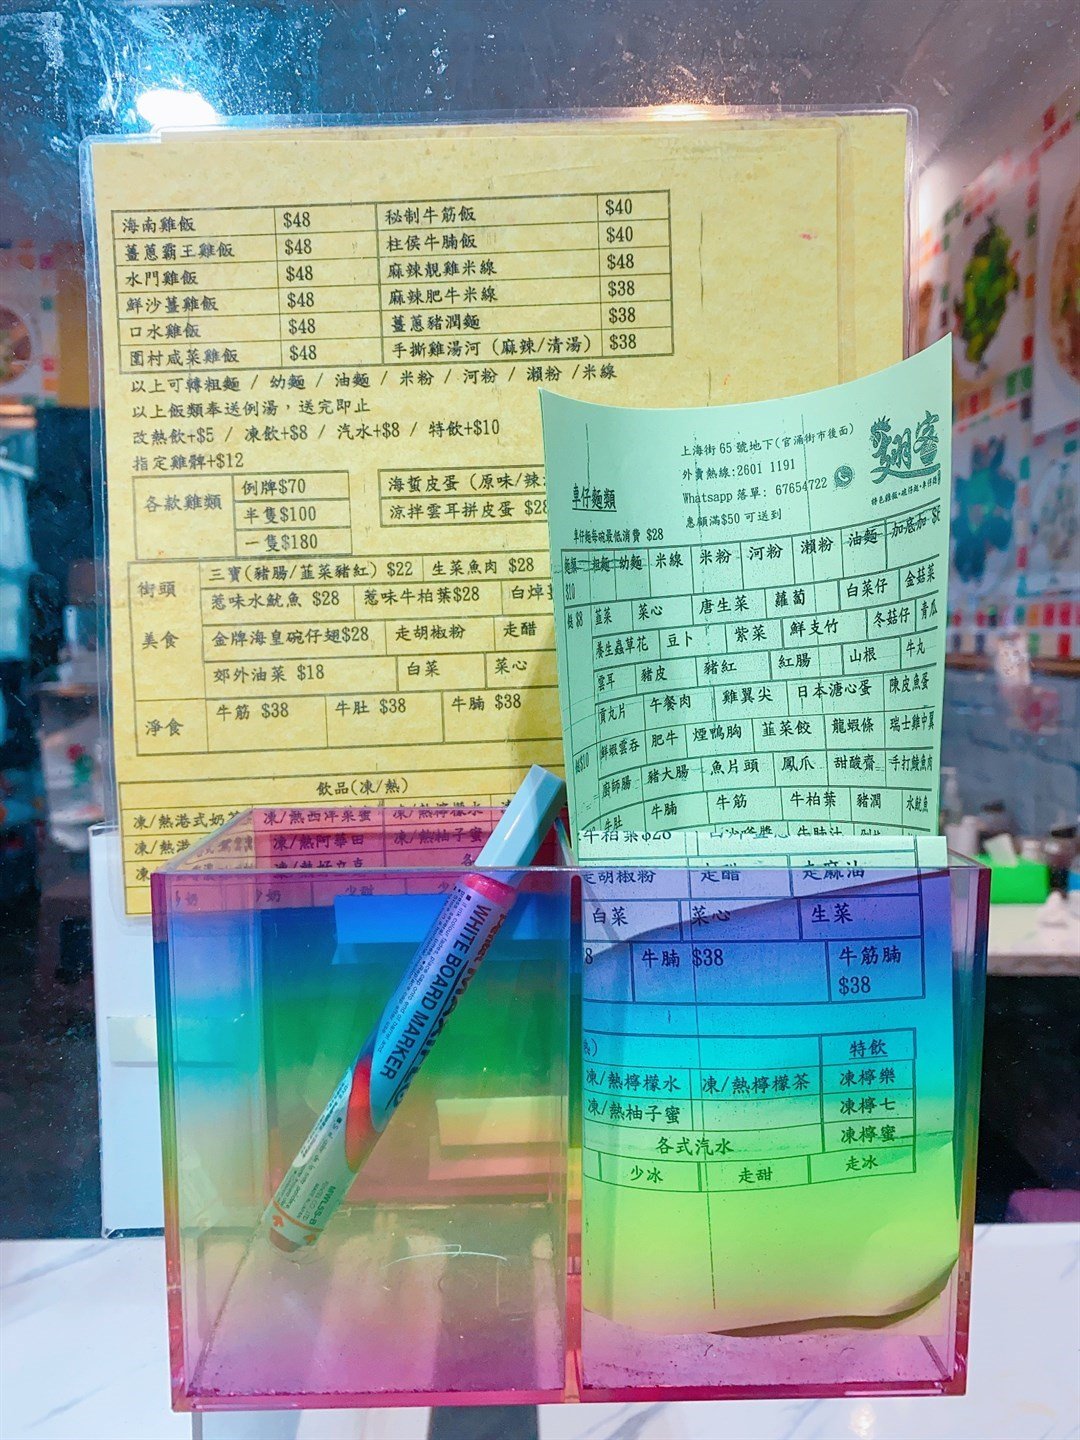 海南雞飯 $48 秘制牛筋飯 $40
薑蔥霸王雞飯 $48 柱侯牛腩飯 $40
水門雞飯 $48 麻辣靚雞米線 $48
鮮沙薑雞飯 $48 麻辣肥牛米線 $38
口水雞飯 $48 薑蔥豬潤麵 $38
圍村咸菜雞飯 $48 手撕雞湯河(麻辣/清湯) $38
以上可轉粗麵 / 幼麵 / 油麵 / 米粉 / 河粉 / 瀨粉 /米線
以上飯類奉送例湯，送完即止
改熱飲+$5 / 凍飲+$8 / 汽水+$8 / 特飲+$10
指定雞髀+$12
各款雞類 例牌$70
半隻$100
一隻$180
海蜇皮蛋(原味/辣
涼拌雲耳拼皮蛋 $28
街頭美食 三寶(豬腸/韮菜豬紅) $22 生菜魚肉 $28
惹味水魷魚 $28 惹味牛柏葉$28 白焯
金牌海皇碗仔翅$28 走胡椒粉 走醋
郊外油菜 $18 白菜 菜心
淨食 牛筋 $38 牛肚 $38 牛腩 $38
飲品(凍/熱)
凍/熱港式奶茶 凍/熱西洋菜蜜 凍/熱檸檬水
凍/熱 凍/熱阿華田 凍/熱柚子蜜
凍/熱好立克 各
少奶 少甜
翊客
上海街 65 號地下(官涌街市後面)
外賣熱線:2601 1191
Whatsapp 落單: 67654722
惠顧滿$50 可送到
車仔麵類
車仔麵每碗最低消費 $28
麵類 $10 粗麵 幼麵 米線 米粉 河粉 瀨粉 油麵 加底加
餸 $8 韮菜 菜心 唐生菜 蘿蔔 白菜仔 金菇菜
養生蟲草花 豆卜 紫菜 鮮支竹 冬菇仔 青瓜
雲耳 豬皮 豬紅 紅腸 山根 牛丸
貢丸片 午餐肉 雞翼尖 日本溏心蛋 陳皮魚蛋
$10 鮮蝦雲吞 肥牛 煙鴨胸 韮菜餃 龍蝦條 瑞士雞中翼
廚師腸 豬大腸 魚片頭 鳳爪 甜酸齋 手打鯪魚肉
牛肚 牛腩 牛筋 牛柏葉 豬潤 水魷魚
牛柏葉$28
走胡椒粉 走醋 走麻油
白菜 菜心 生菜
8 牛腩 $38 牛筋腩 $38
熱) 特飲
凍/熱檸檬水 凍/熱檸檬茶 凍檸樂
凍/熱柚子蜜 凍檸七
各式汽水 凍檸蜜
少冰 走甜 走冰
Pentel
WHITE BOARD MARKER
MWL5S-B